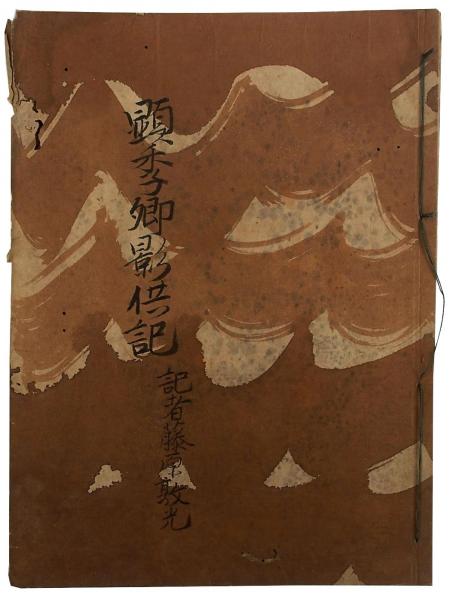 顕季卿影供記
記者藤原敦光